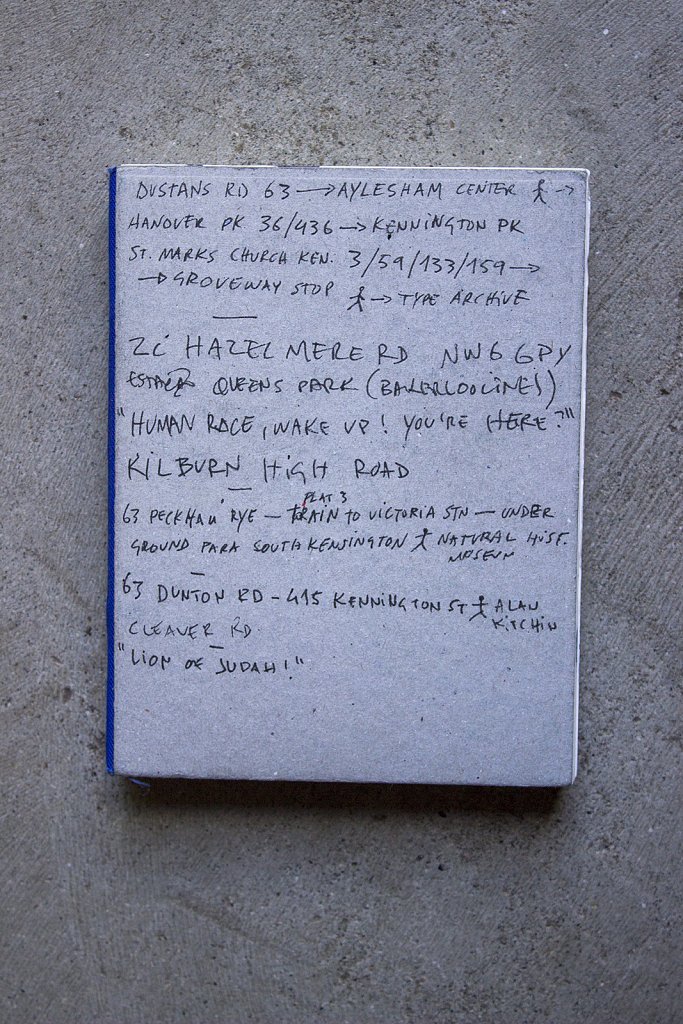 DUSTANS RD 63 → AYLESHAM CENTER →
HANOVER PK 36/436 → KENNINGTON PK
ST. MARKS CHURCH KEN. 3/59/133/159 →
→ GROVEWAY STOP → TYPE ARCHIVE
2C HAZELMERE RD NW6 6PY
QUEENS PARK (BAKERLOOLINES)
"HUMAN RACE, WAKE UP! YOU'RE HERE?!"
KILBURN HIGH ROAD
PLAT 3
63 PECKHAM RYE — TRAIN TO VICTORIA STN — UNDER
GROUND PARA SOUTH KENSINGTON NATURAL HIST.
MUSEUM
63 DUNTON RD - 415 KENNINGTON ST ALAN
KITCHIN
CLEAVER RD
"LION OF JUDAH!"